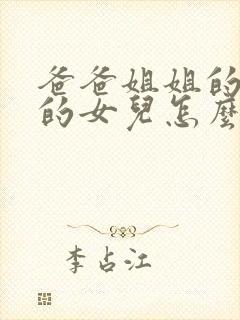 爸爸姐姐的
的女兒怎麼
李占江